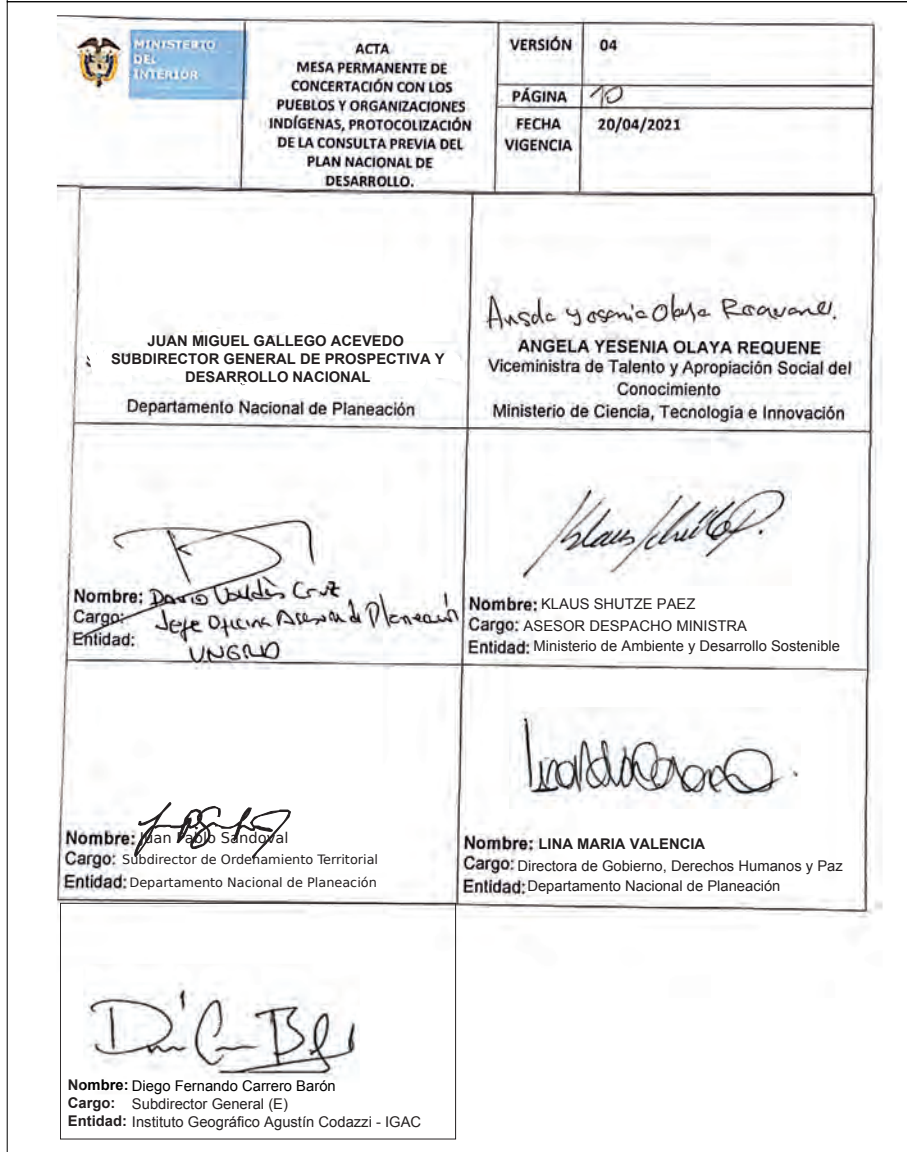 MINISTERIO
DEL
INTERIOR
ACTA
MESA PERMANENTE DE
CONCERTACIÓN CON LOS
PUEBLOS Y ORGANIZACIONES
INDÍGENAS, PROTOCOLIZACIÓN
DE LA CONSULTA PREVIA DEL
PLAN NACIONAL DE
DESARROLLO.
VERSIÓN 04
PÁGINA 10
FECHA VIGENCIA 20/04/2021
JUAN MIGUEL GALLEGO ACEVEDO
SUBDIRECTOR GENERAL DE PROSPECTIVA Y
DESARROLLO NACIONAL
Departamento Nacional de Planeación
ANGELA YESENIA OLAYA REQUENE
Viceministra de Talento y Apropiación Social del
Conocimiento
Ministerio de Ciencia, Tecnología e Innovación
Nombre: Dario Valdés Cruz
Cargo: Jefe Oficina Asesora de Planeación
Entidad: UNGRD
Nombre: KLAUS SHUTZE PAEZ
Cargo: ASESOR DESPACHO MINISTRA
Entidad: Ministerio de Ambiente y Desarrollo Sostenible
Nombre: Juan Pablo Sandoval
Cargo: Subdirector de Ordenamiento Territorial
Entidad: Departamento Nacional de Planeación
Nombre: LINA MARIA VALENCIA
Cargo: Directora de Gobierno, Derechos Humanos y Paz
Entidad: Departamento Nacional de Planeación
Nombre: Diego Fernando Carrero Barón
Cargo: Subdirector General (E)
Entidad: Instituto Geográfico Agustín Codazzi - IGAC